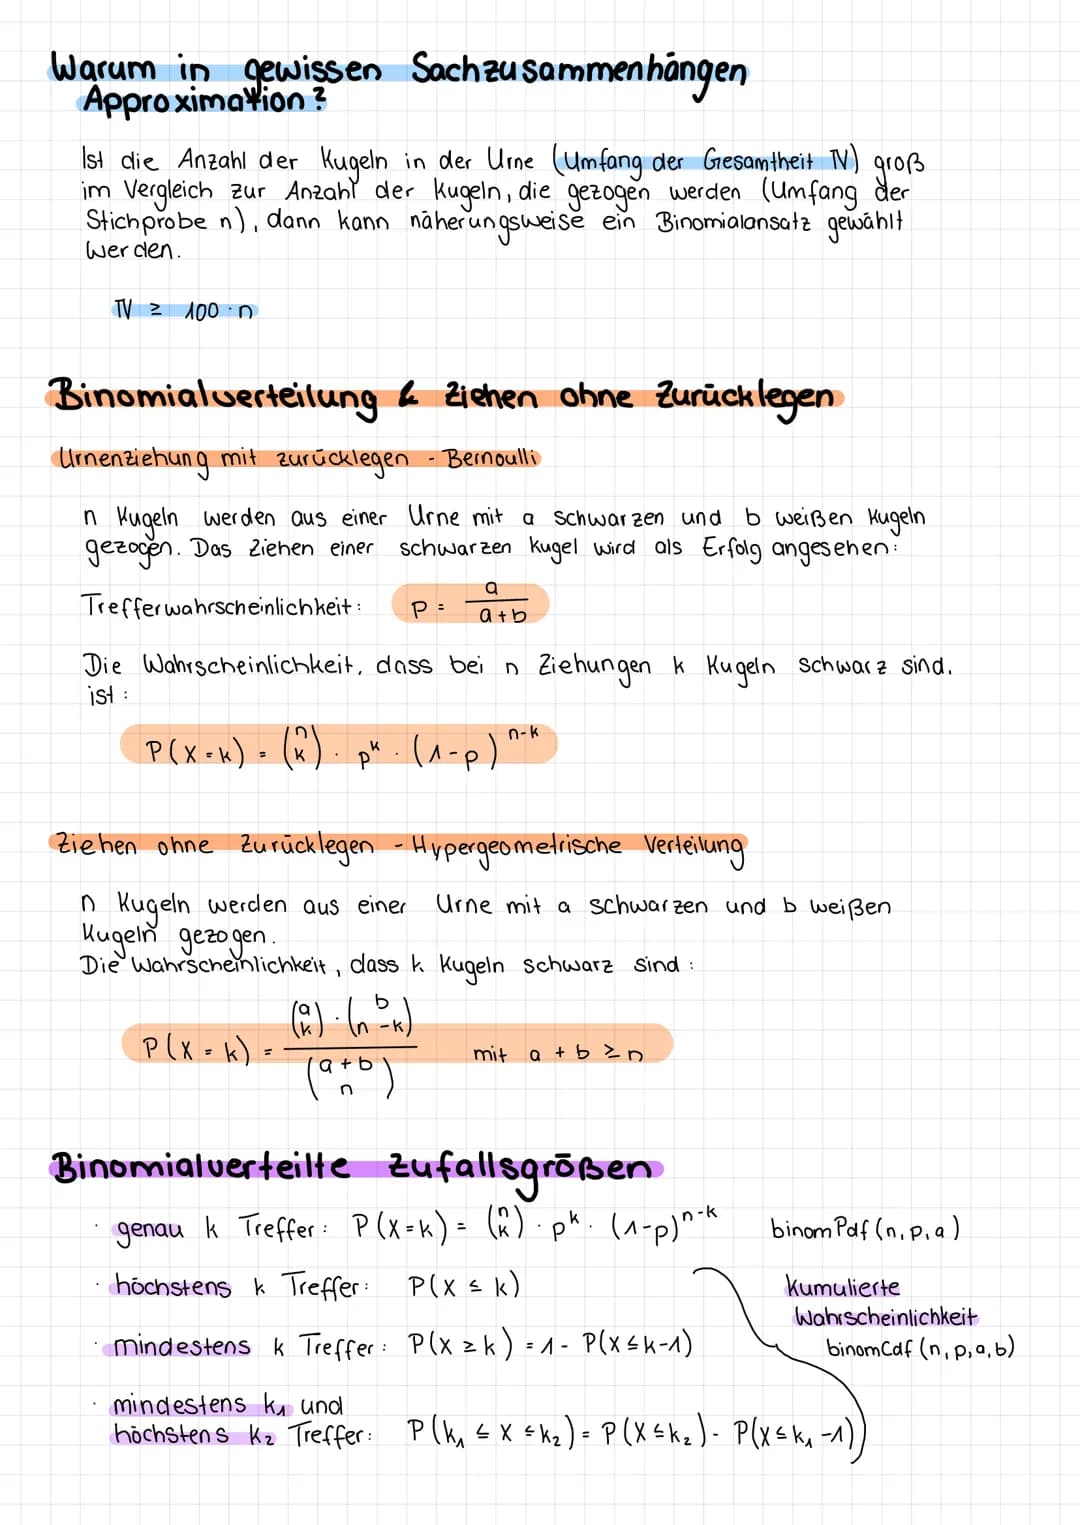 Warum in gewissen Sachzusammenhängen
Approximation?
Ist die Anzahl der Kugeln in der Urne (Umfang der Gesamtheit N) groß
im Vergleich zur Anzahl der Kugeln, die gezogen werden (Umfang der
Stichprobe n), dann kann näherungsweise ein Binomialansatz gewählt
werden.
N ≥ 100 · n
Binomialverteilung & Ziehen ohne Zurücklegen
Urnenziehung mit zurücklegen - Bernoulli
n Kugeln werden aus einer Urne mit a schwarzen und b weißen Kugeln
gezogen. Das Ziehen einer schwarzen Kugel wird als Erfolg angesehen:
Trefferwahrscheinlichkeit: P = a / (a+b)
Die Wahrscheinlichkeit, dass bei n Ziehungen k Kugeln schwarz sind,
ist:
P(X=k) = (n k) · p^k · (1-p)^n-k
Ziehen ohne Zurücklegen - Hypergeometrische Verteilung
n Kugeln werden aus einer Urne mit a schwarzen und b weißen
Kugeln gezogen.
Die Wahrscheinlichkeit, dass k Kugeln schwarz sind:
P(X=k) = (a k) · (b n-k) / (a+b n) mit a + b ≥ n
Binomialverteilte Zufallsgrößen
· genau k Treffer: P(X=k) = (n k) · p^k · (1-p)^n-k binomPdf(n,p,a)
· höchstens k Treffer: P(X ≤ k) Kumulierte
Wahrscheinlichkeit
· mindestens k Treffer: P(X ≥ k) = 1 - P(X ≤ k-1) binomCdf(n,p,a,b)
· mindestens k₁ und
höchstens k₂ Treffer: P(k₁ ≤ X ≤ k₂) = P(X ≤ k₂) - P(X ≤ k₁ -1)